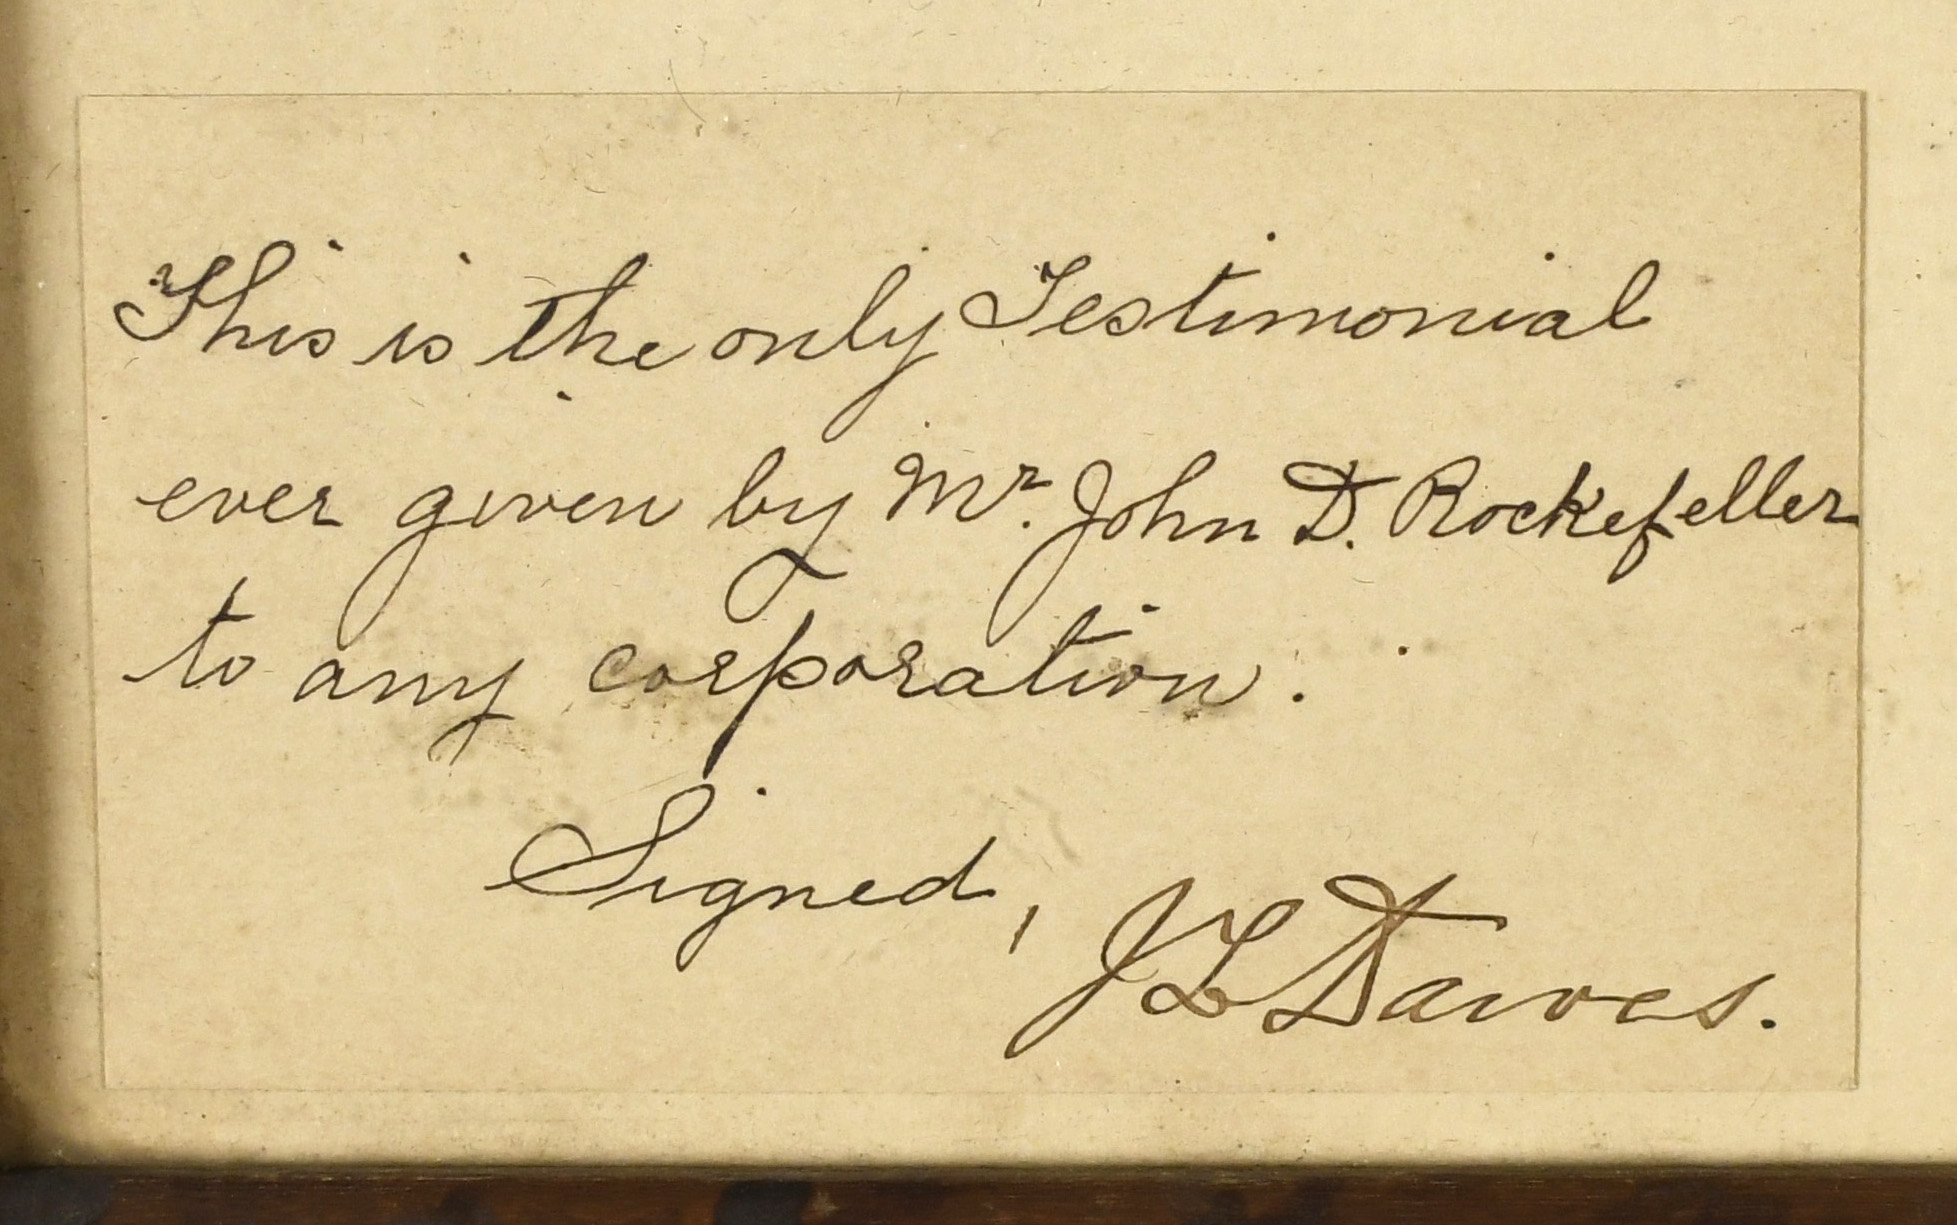 This is the only Testimonial
ever given by Mr. John D. Rockefeller
to any corporation.
Signed, JL Dawes.